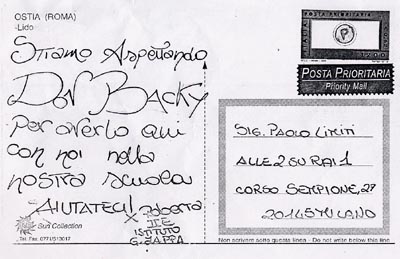 OSTIA (ROMA)
-Lido
Stiamo Aspettando
Don Backy
Per averlo qui
con noi nella
nostra scuola
AIUTATECI!
x Roberta
ISTITUTO
Sun Collection
Tel. Fax: 0771/513017
POSTA PRIORITARIA
Priority Mail
P
SIG. PAOLO LIMITI
ALLE 2 SU RAI 1
CORSO SEMPIONE, 27
20145 MILANO
Non scrivere sotto questa linea - Do not write below this line